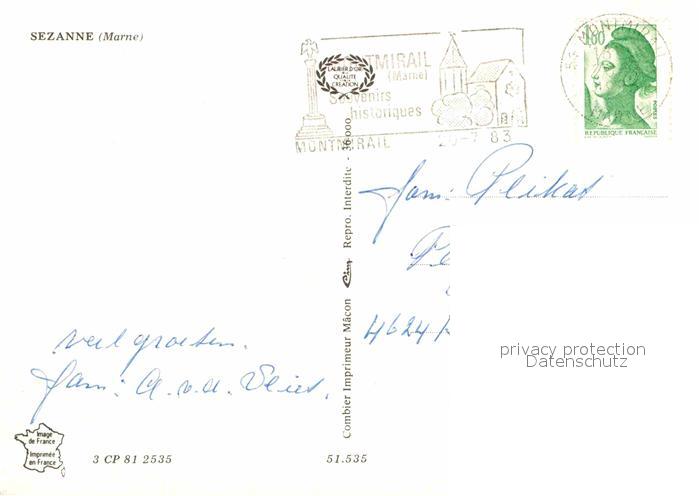 SEZANNE (Marne)
LAURIER D'OR
QUALITE
CREATION
MONTMIRAIL
(Marne)
Souvenirs
historiques
MONTMIRAIL
20-7 83
1,80
REPUBLIQUE FRANÇAISE
POSTES
Fam: Plikat
4624
veel groeten.
Fam: A.v.d. Vliet.
privacy protection
Datenschutz
Combier Imprimeur Mâcon Repro. Interdite -
Image
de France
Imprimée
en France
3 CP 81 2535
51.535